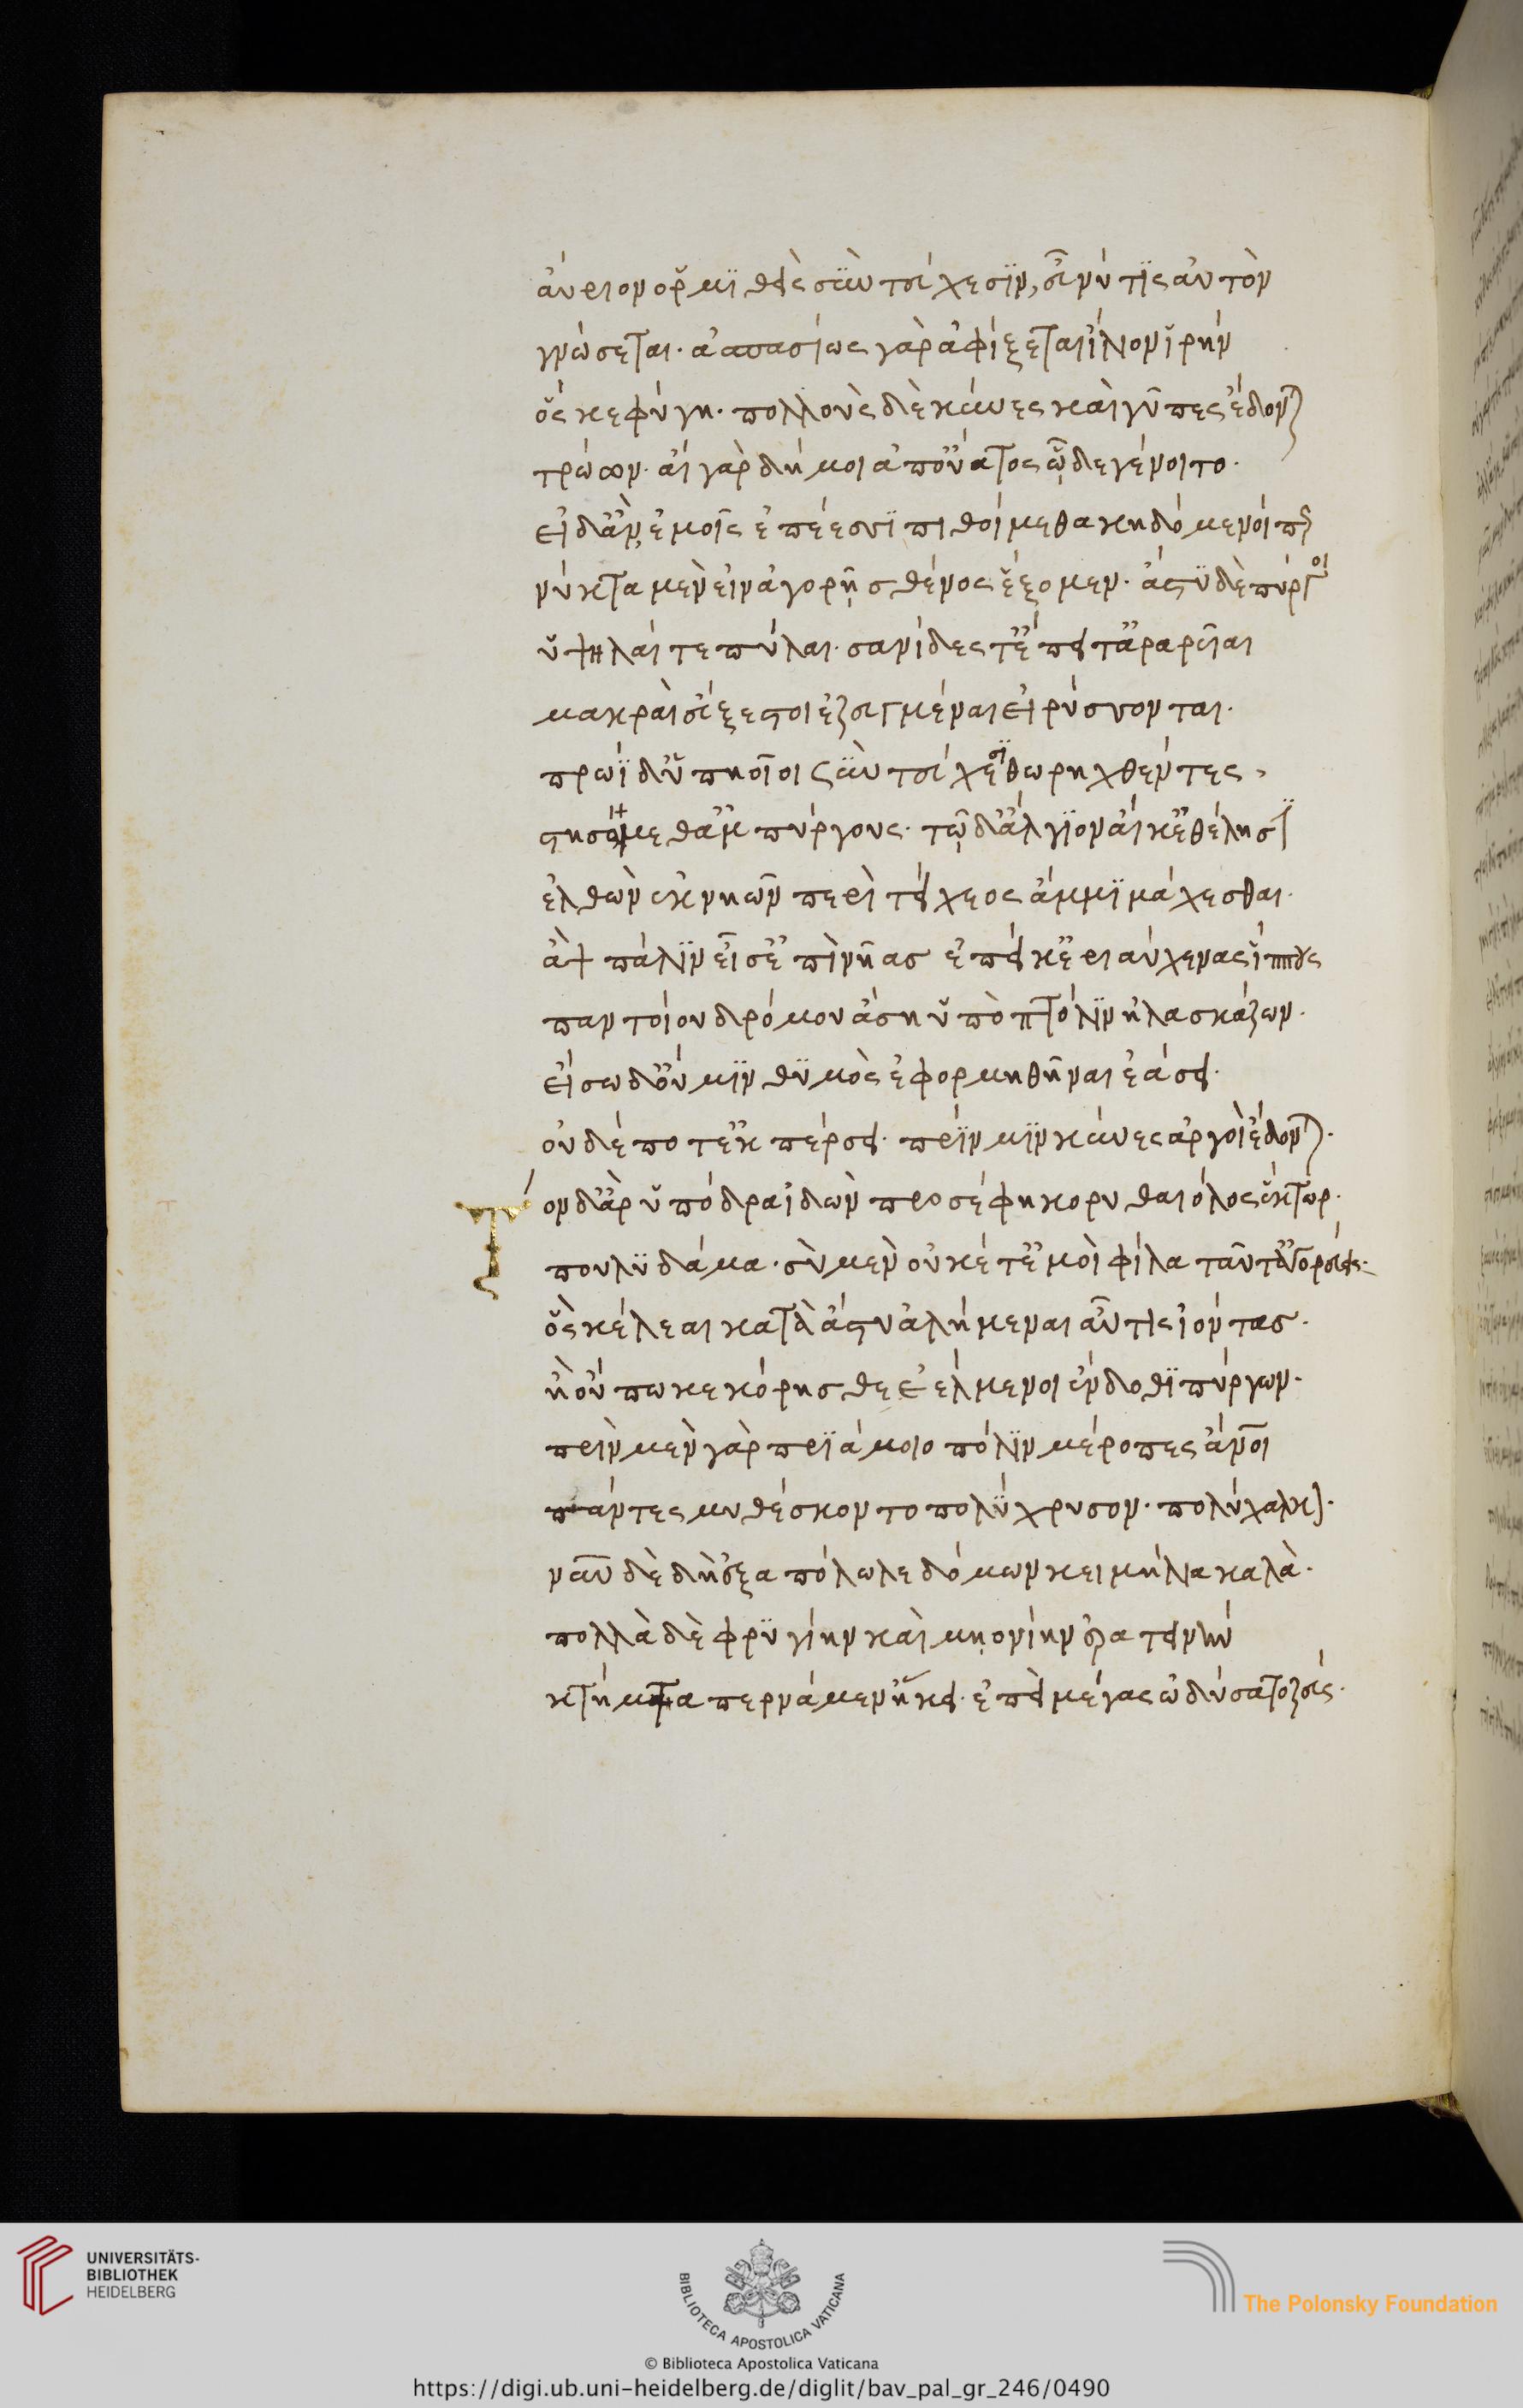 αὔριον ὁρμηθεὶς σὺν τεύχεσιν, εὖ νύ τις αὐτὸν
γνώσεται· ἀσπασίως γὰρ ἀφίξεται ἴλιον ἱρὴν
ὅς κε φύγῃ· πολλοὺς δὲ κύνες καὶ γῦπες ἔδονται
τρώων· αἲ γὰρ δή μοι ἀπ' οὔατος ὧδε γένοιτο·
εἰ δ' ἂν ἐμοῖς ἐπέεσσι πιθοίμεθα κηδόμενοί περ
νύκτα μὲν εἰν ἀγορῇ σθένος ἕξομεν· ἄστυ δὲ πύργοι
ὑψηλαί τε πύλαι· σανίδες τ' ἐπὶ τῇς ἀραρυῖαι
μακραὶ ἐΰξεστοι ἐζευγμέναι εἰρύσσονται·
πρωῒ δ' ὑπηοῖοι σὺν τεύχεσι θωρηχθέντες,
στησόμεθ' ἂμ πύργους· τῷ δ' ἄλγιον αἴ κ' ἐθέλησι
ἐλθὼν ἐκ νηῶν περὶ τείχεος ἄμμι μάχεσθαι·
ἂψ πάλιν εἶσ' ἐπὶ νῆας ἐπεί κ' ἐριαύχενας ἵππους
παντοίου δρόμου ἄσῃ ὑπὸ πτόλιν ἠλασκάζων·
εἴσω δ' οὔ μιν θυμὸς ἐφορμηθῆναι ἐάσει·
οὐδέ ποτ' ἐκπέρσει· πρίν μιν κύνες ἀργοὶ ἔδονται·
Τὸν δ' ἂρ ὑπόδρα ἰδὼν προσέφη κορυθαιόλος ἕκτωρ·
πουλυδάμα· σὺ μὲν οὐκέτ' ἐμοὶ φίλα ταῦτ' ἀγορεύεις·
ὃς κέλεαι κατὰ ἄστυ ἀλήμεναι αὖτις ἰόντας·
ἢ οὔπω κεκόρησθε ἐελμένοι ἔνδοθι πύργων·
πρὶν μὲν γὰρ πριάμοιο πόλιν μέροπες ἄνθρωποι
πάντες μυθέσκοντο πολύχρυσον· πολύχαλκον·
νῦν δὲ δὴ ἐξαπόλωλε δόμων κειμήλια καλὰ·
πολλὰ δὲ φρυγίην καὶ μῃονίην ἐρατεινὴν
κτήματα περνάμεν' ἥκει· ἐπεὶ μέγας ὠδύσατο ζεύς·
UNIVERSITÄTS-
BIBLIOTHEK
HEIDELBERG
BIBLIOTECA APOSTOLICA VATICANA
The Polonsky Foundation
© Biblioteca Apostolica Vaticana
https://digi.ub.uni-heidelberg.de/diglit/bav_pal_gr_246/0490